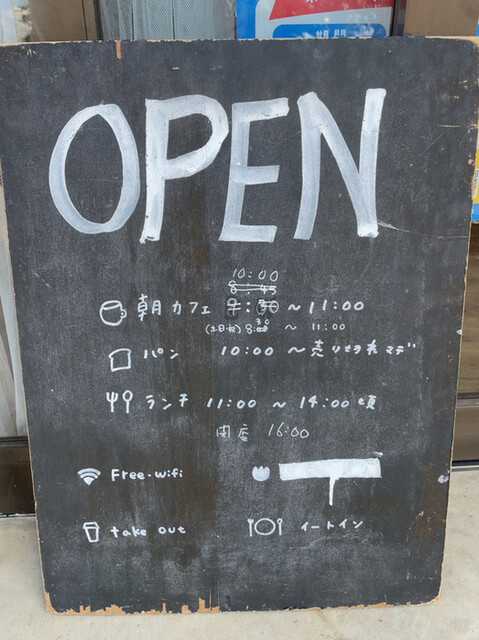 OPEN
10:00
8:45
朝カフェ 9:00 ~ 11:00
(土日祝) 8:30 ~ 11:00
パン 10:00 ~ 売り切れマデ
ランチ 11:00 ~ 14:00頃
閉店 16:00
Free-wifi
take out
イートイン